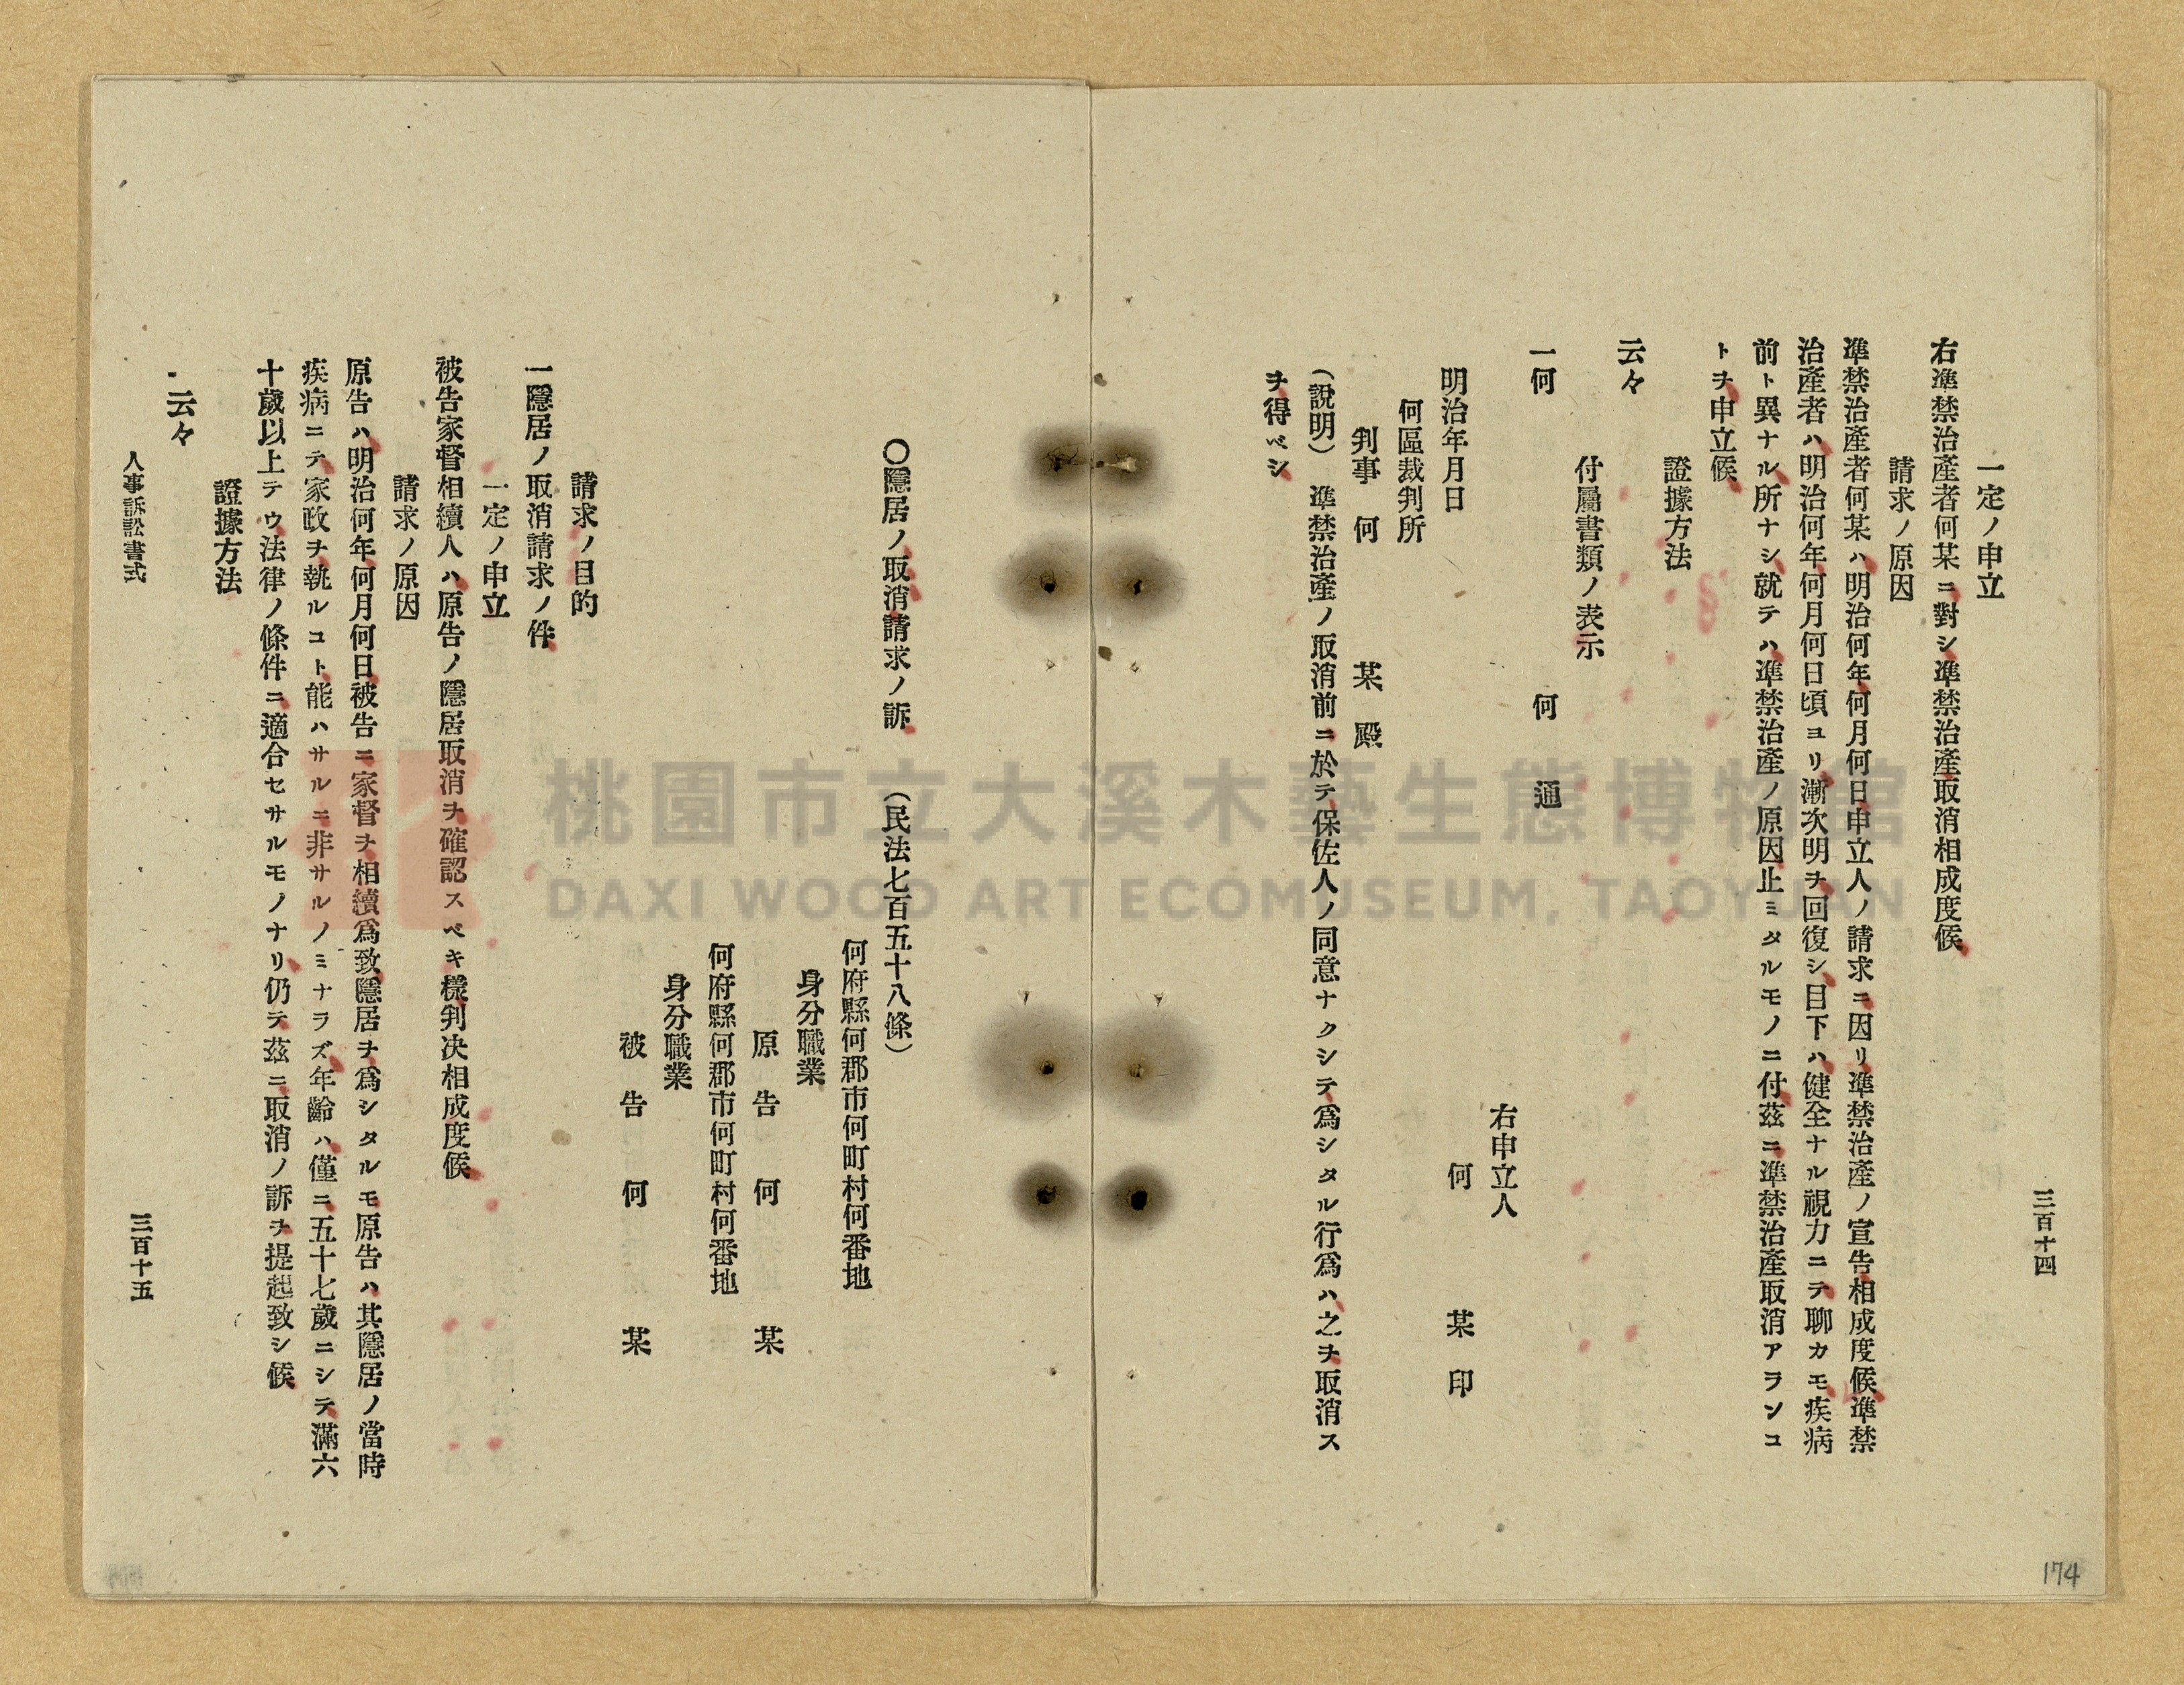 三百十四
一定ノ申立
右準禁治產者何某ニ對シ準禁治產取消相成度候
請求ノ原因
準禁治產者何某ハ明治何年何月何日申立人ノ請求ニ因リ準禁治產ノ宣告相成度候準禁
治產者ハ明治何年何月何日頃ヨリ漸次明ヲ回復シ目下ハ健全ナル視力ニテ聊カモ疾病
前ト異ナル所ナシ就テハ準禁治產ノ原因止ミタルモノニ付茲ニ準禁治產取消アランコ
トヲ申立候
證據方法
云々
付屬書類ノ表示
一何 何通
右申立人
何某印
明治年月日
何區裁判所
判事何某殿
(說明) 準禁治產ノ取消前ニ於テ保佐人ノ同意ナクシテ爲シタル行爲ハ之ヲ取消ス
ヲ得ベシ
174
〇隱居ノ取消請求ノ訴 (民法七百五十八條)
何府縣何郡市何町村何番地
身分職業
原告何某
何府縣何郡市何町村何番地
身分職業
被告何某
請求ノ目的
一隱居ノ取消請求ノ件
一定ノ申立
被告家督相續人ハ原告ノ隱居取消ヲ確認スベキ樣判决相成度候
請求ノ原因
原告ハ明治何年何月何日被告ニ家督ヲ相續爲致隱居ヲ爲シタルモ原告ハ其隱居ノ當時
疾病ニテ家政ヲ執ルコト能ハサルニ非サルノミナラズ年齡ハ僅ニ五十七歲ニシテ滿六
十歲以上テウ法律ノ條件ニ適合セサルモノナリ仍テ茲ニ取消ノ訴ヲ提起致シ候
證據方法
云々
人事訴訟書式
三百十五
桃園市立大溪木藝生態博物館
DAXI WOOD ART ECOMUSEUM, TAOYUAN